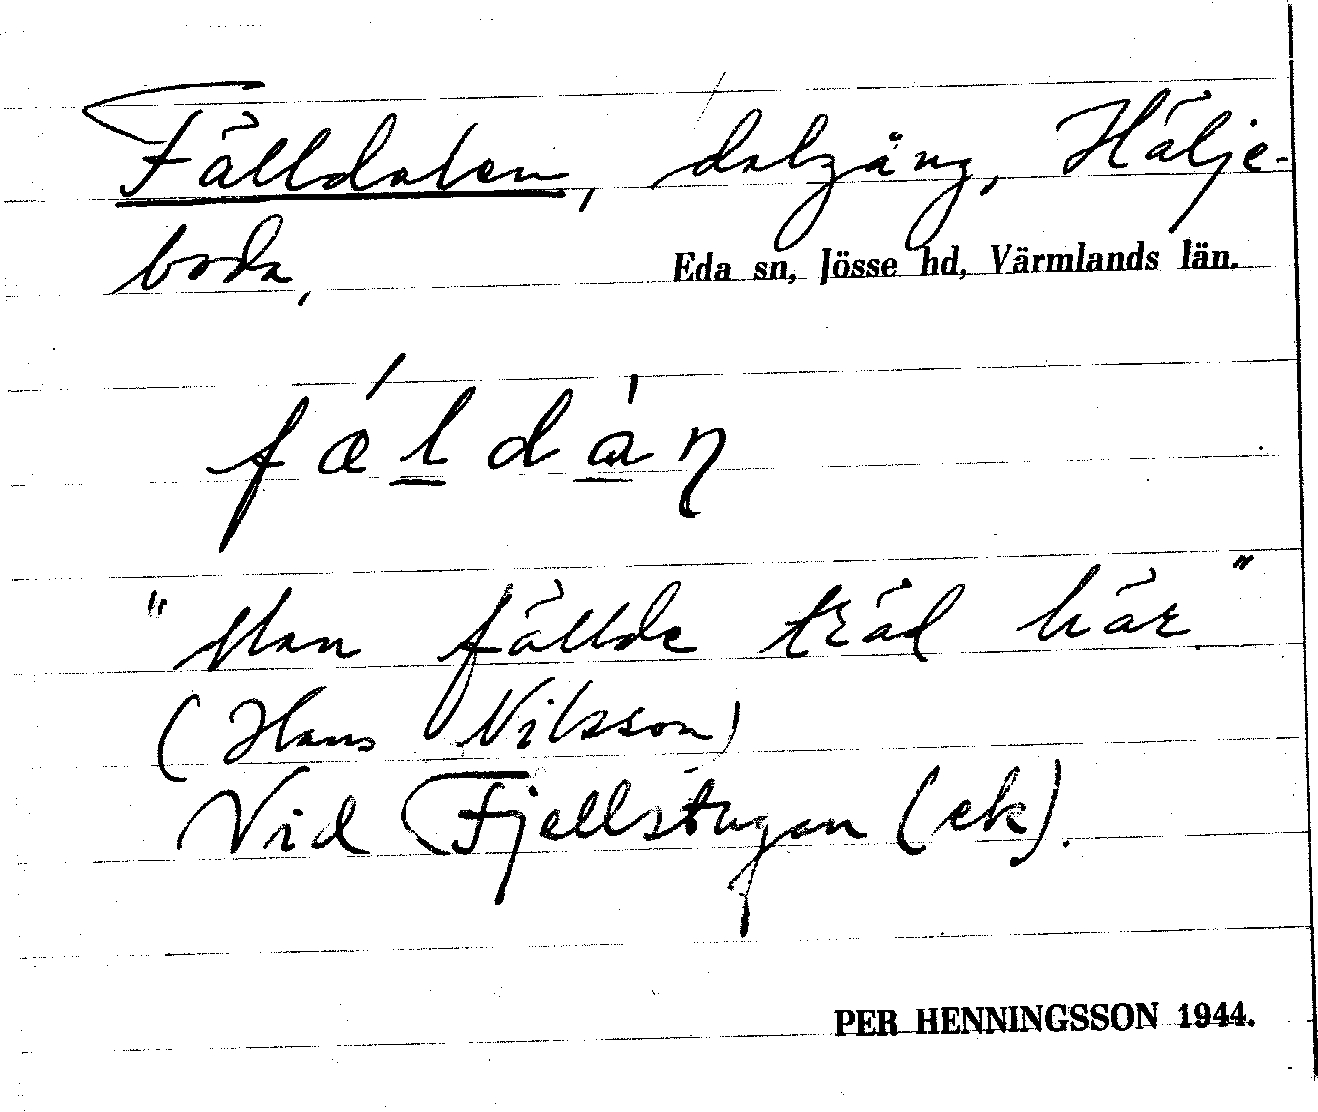 Fälldalen, dalgäng, Hälje-
boda,
Eda sn, Jösse hd, Värmlands län.
fæ´l̲da̲̍ɳ
"Man fällde träd här"
(Hans Nilsson)
Vid Fjellstugan (ek).
PER HENNINGSSON 1944.